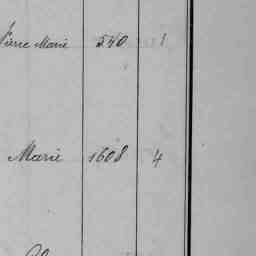 Pierre Marie 540 1
Marie 1608 4